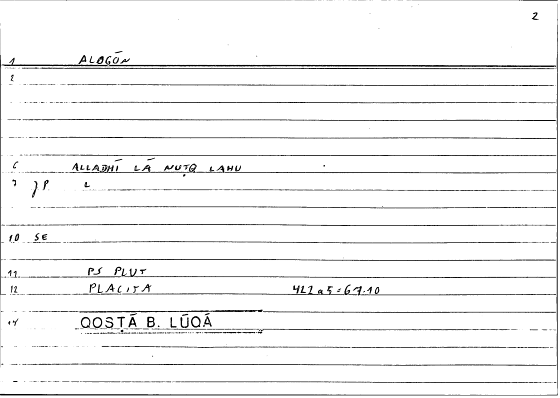 2
1 ALOGŌN
2
6 ALLADHĪ LĀ NUṬQ LAHU
7 JP 2
10 SE
11 PS PLUT
12 PLACITA 422a5=67.10
14 QOSṬĀ B. LŪQĀ